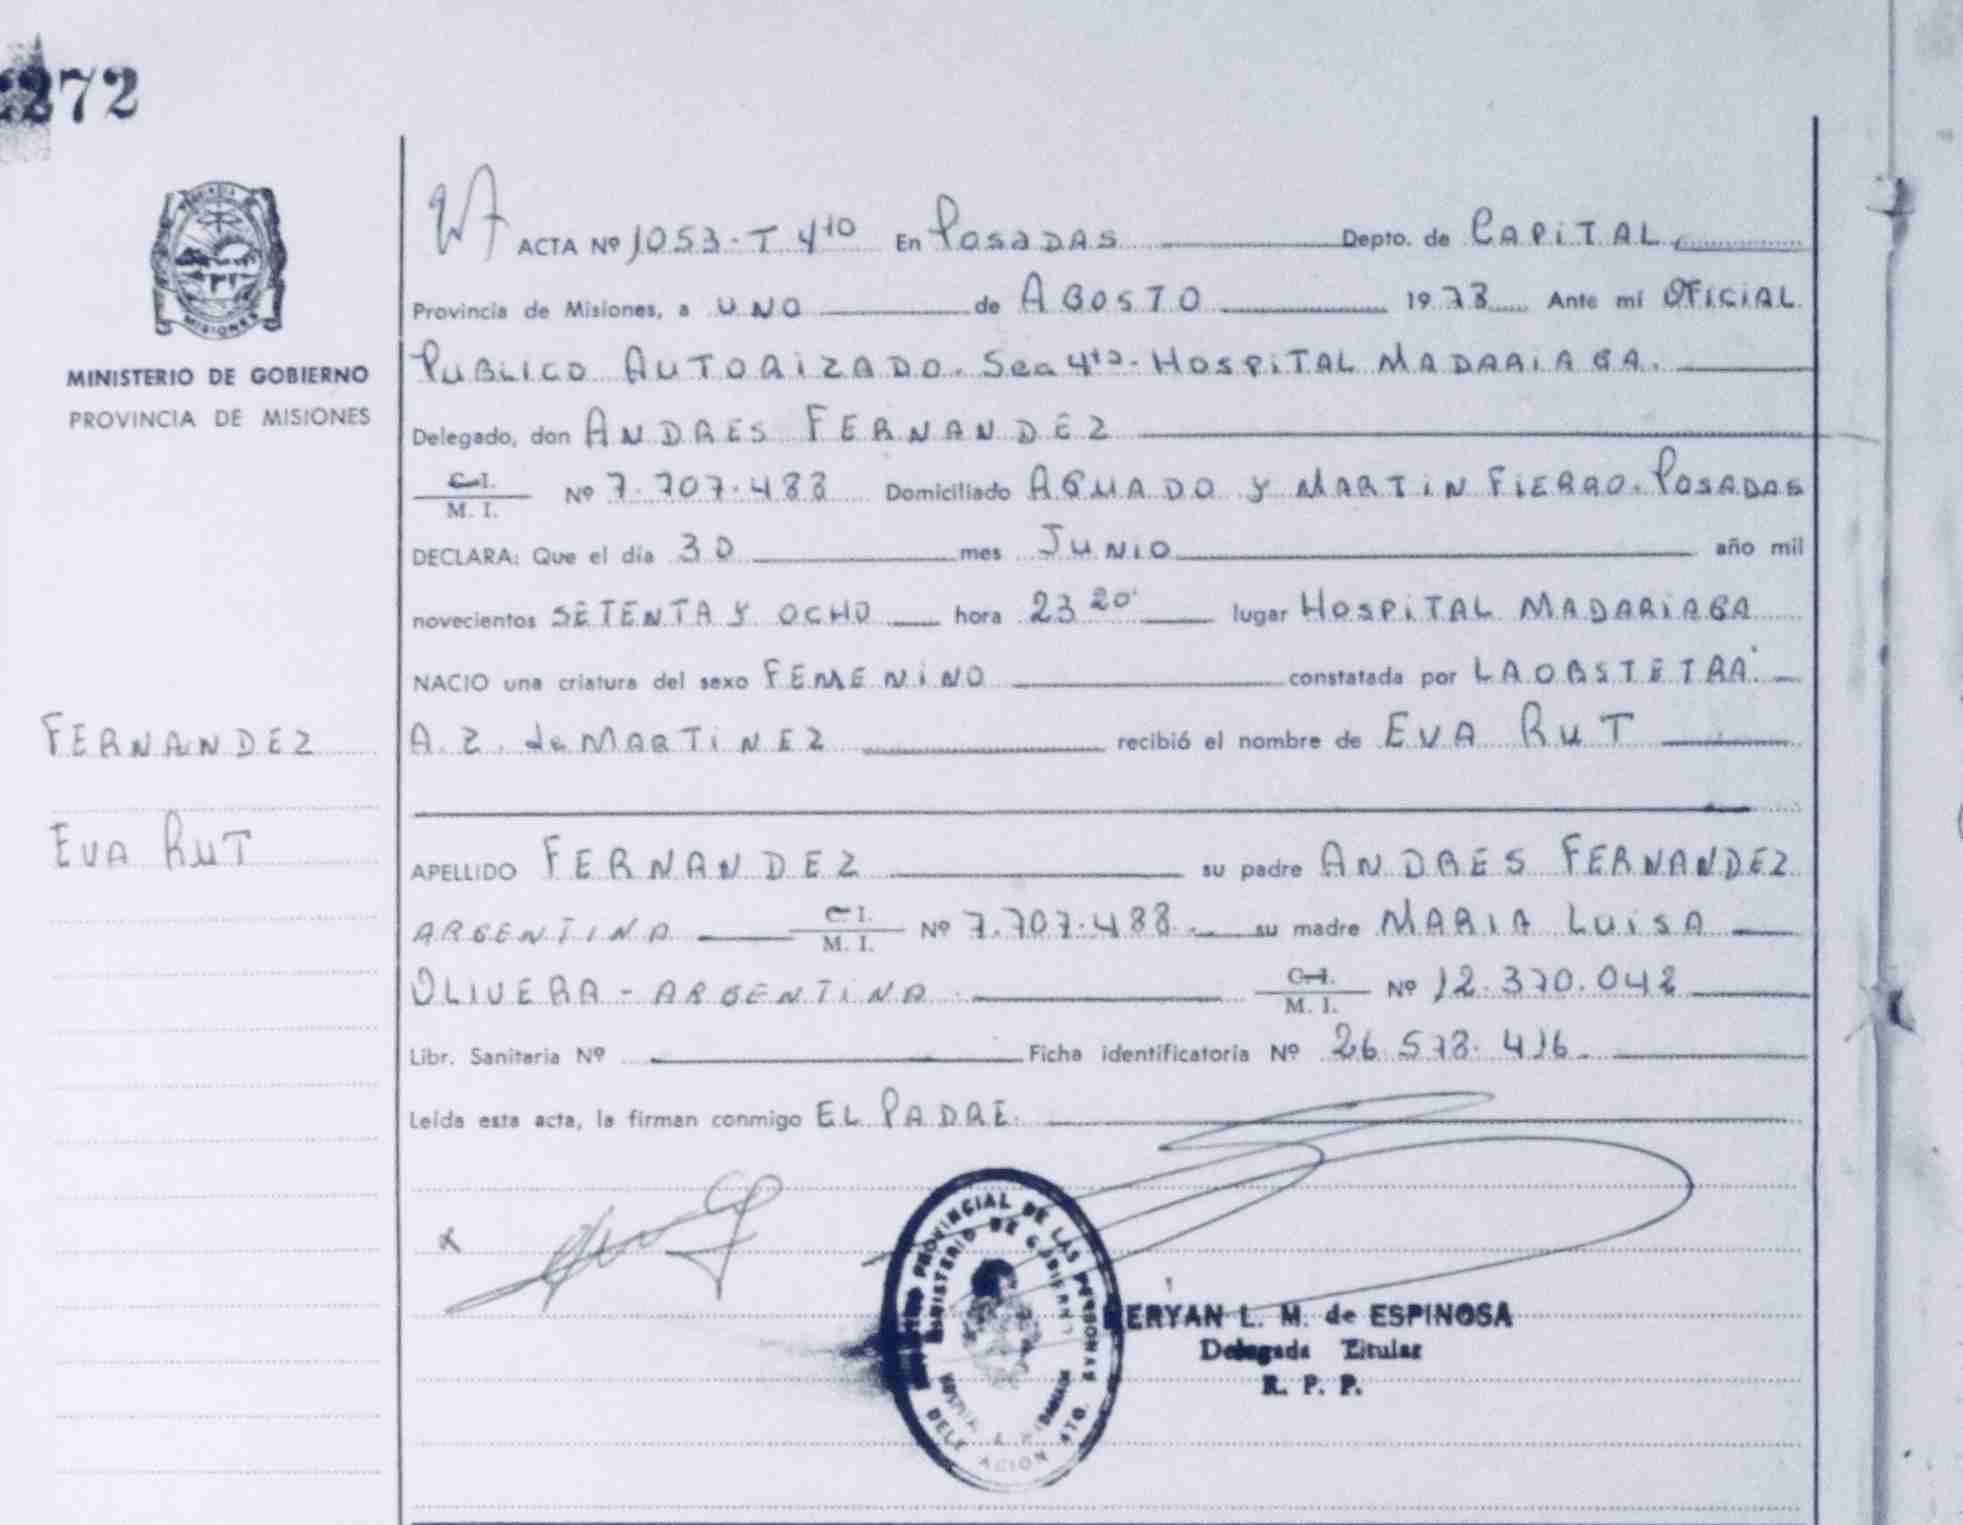 272
MISIONES
MINISTERIO DE GOBIERNO
PROVINCIA DE MISIONES
ACTA Nº 1053-T 4to En POSADAS Depto. de CAPITAL
Provincia de Misiones, a UNO de AGOSTO 1978 Ante mí OFICIAL
PUBLICO AUTORIZADO. Sec 4ta- HOSPITAL MADARIAGA.
Delegado, don ANDRES FERNANDEZ
C.I. / M. I. Nº 7.707.488 Domiciliado AGUADO Y MARTIN FIERRO. POSADAS
DECLARA: Que el día 30 mes JUNIO año mil
novecientos SETENTA Y OCHO hora 23 20' lugar HOSPITAL MADARIAGA
NACIO una criatura del sexo FEMENINO constatada por LA OBSTETRA.
FERNANDEZ
A. Z. de MARTINEZ recibió el nombre de EVA RUT
EVA RUT
APELLIDO FERNANDEZ su padre ANDRES FERNANDEZ
ARGENTINA C I. / M. I. Nº 7.707.488. su madre MARIA LUISA
OLIVERA - ARGENTINA C.I. / M. I. Nº 12.370.042
Libr. Sanitaria Nº Ficha identificatoria Nº 26.578.416.
Leída esta acta, la firman conmigo EL PADRE.
x
PROVINCIAL DE LAS PERSONAS
MINISTERIO DE GOBIERNO
DELEGACION 4TO.
ERYAN L. M. de ESPINOSA
Delegada Titular
R. P. P.